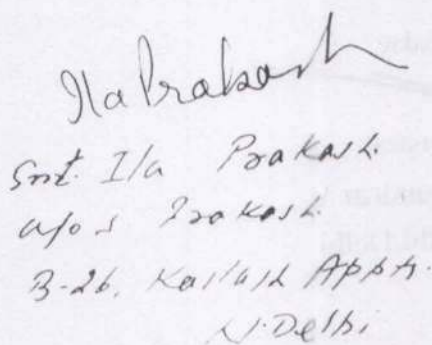 Ila Prakash
Smt. Ila Prakash
w/o S Prakash
B-26, Kailash Appts.
N. Delhi